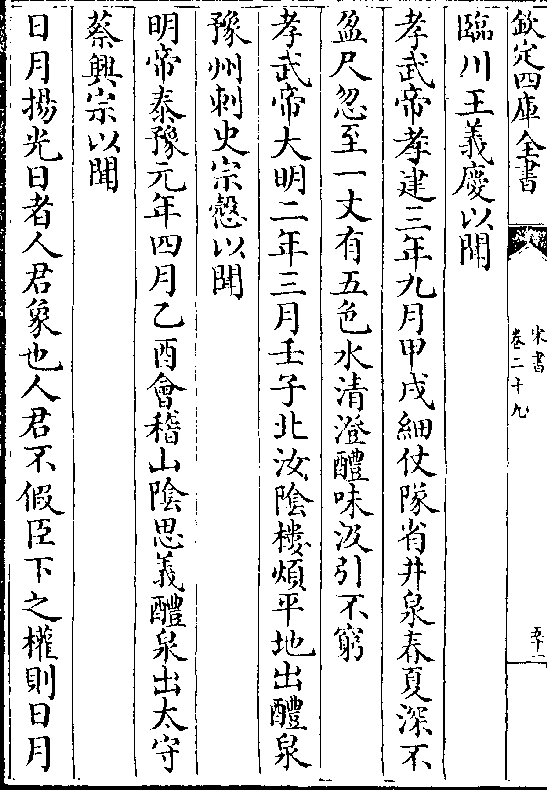 欽定四庫全書
宋書
卷二十九
五十一
臨川王義慶以聞
孝武帝孝建三年九月甲戌細仗隊省井泉春夏深不
盈尺忽至一丈有五色水清澄醴味汲引不窮
孝武帝大明二年三月壬子北汝隂樓煩平地出醴泉
豫州刺史宗慤以聞
明帝泰豫元年四月乙酉會稽山隂思義醴泉出太守
蔡興宗以聞
日月揚光日者人君象也人君不假臣下之權則日月